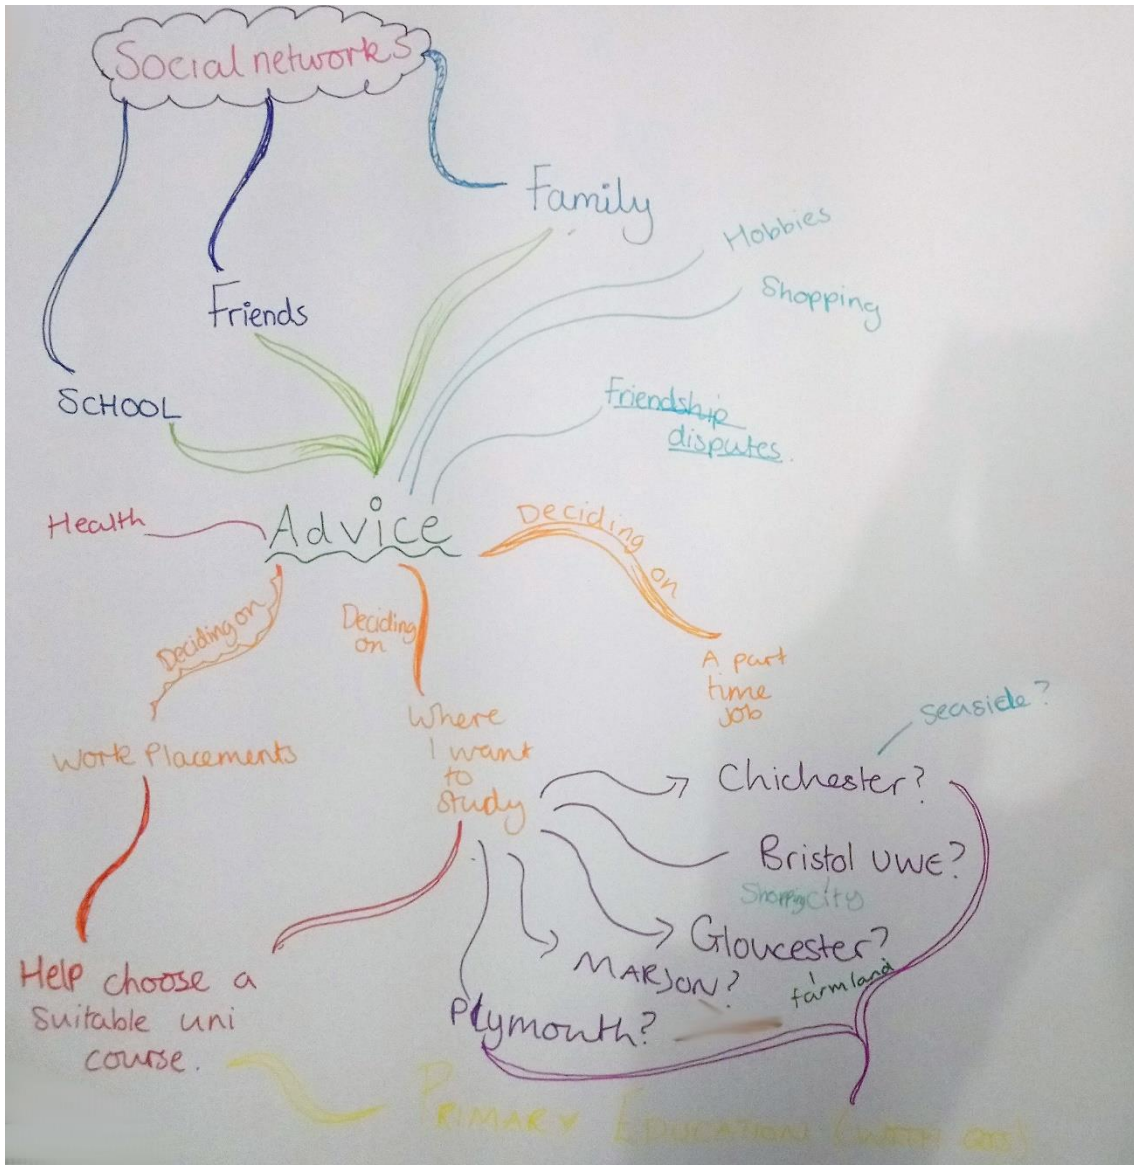 Social networks
Family
Hobbies
Shopping
Friends
SCHOOL
Friendship
disputes.
Health
Advice
Deciding on
Deciding on
Deciding
on
A part
time
job
Work Placements
Where
I want
to
study
seaside?
Chichester?
Bristol UWE?
Shopping City
Gloucester?
farmland
MARJON?
Plymouth?
Help choose a
suitable uni
course.
PRIMARY EDUCATION (WITH QTS)